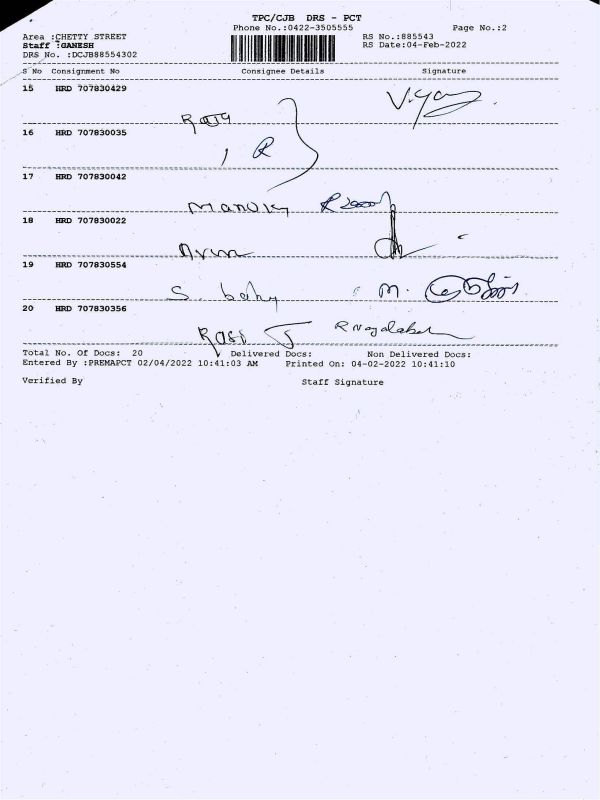 TPC/CJB DRS - PCT
Phone No.:0422-3505555 Page No.:2
Area :CHETTY STREET RS No.:885543
Staff :GANESH RS Date:04-Feb-2022
DRS No. :DCJB88554302
S No Consignment No Consignee Details Signature
15 HRD 707830429
Raja
16 HRD 707830035
R
17 HRD 707830042
Manoj
18 HRD 707830022
Arun
19 HRD 707830554
S. babu M.
20 HRD 707830356
Rasi
Total No. Of Docs: 20 Delivered Docs: Non Delivered Docs:
Entered By :PREMAPCT 02/04/2022 10:41:03 AM Printed On: 04-02-2022 10:41:10
Verified By Staff Signature